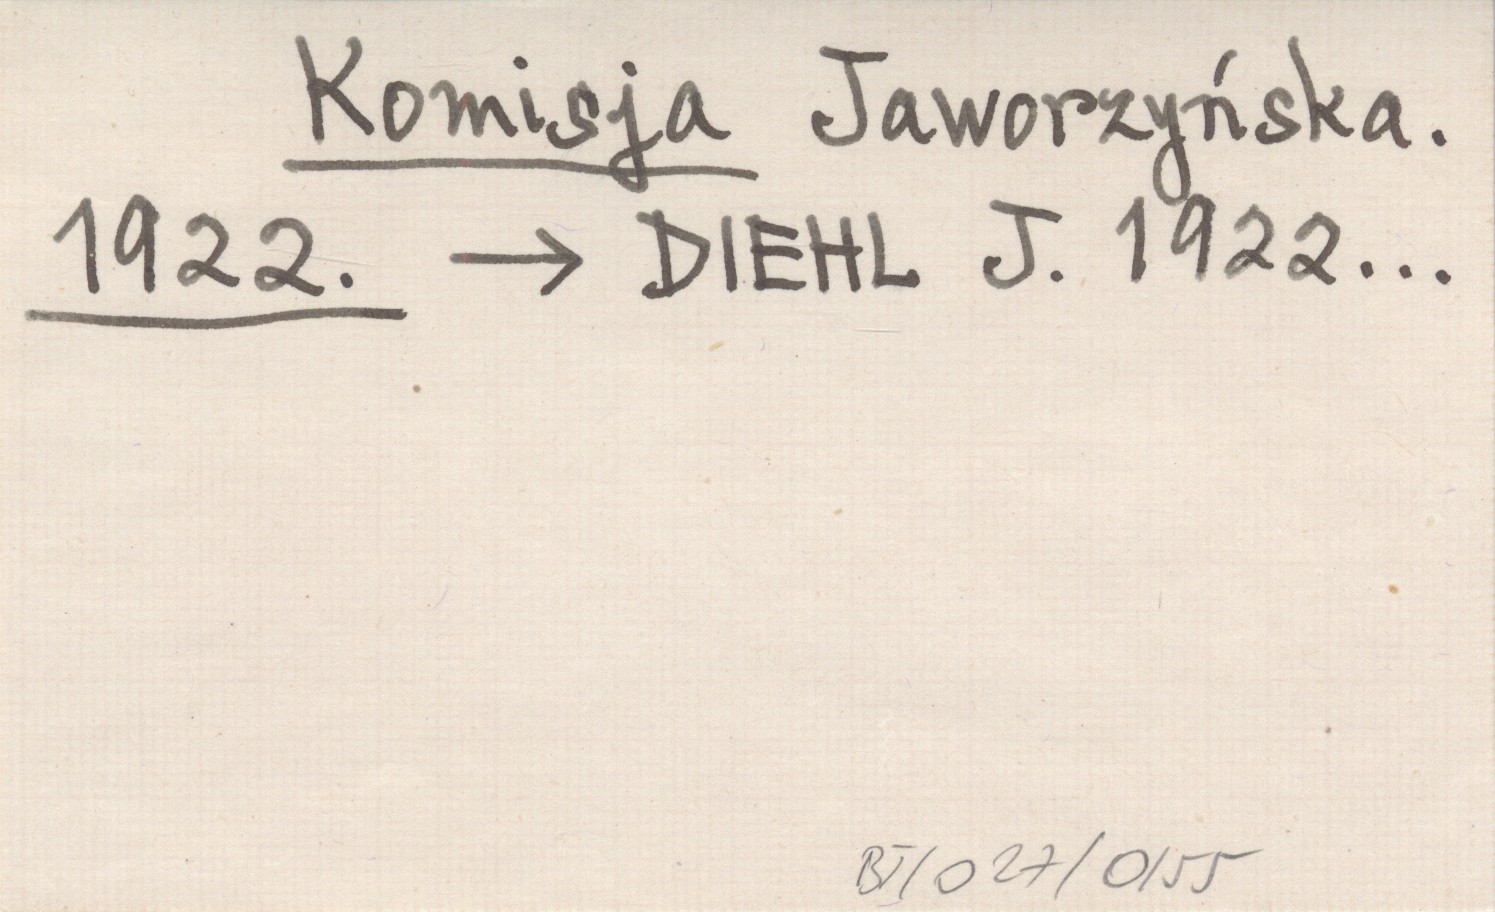 Komisja Jaworzyńska.
1922. → DIEHL J. 1922...
BI/027/0155